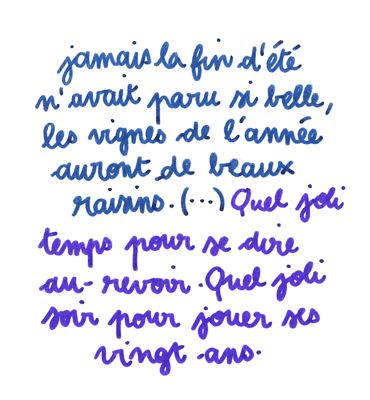 jamais la fin d'été
n'avait paru si belle,
les vignes de l'année
auront de beaux
raisins. (...) Quel joli
temps pour se dire
au-revoir. Quel joli
soir pour jouer ses
vingt ans.